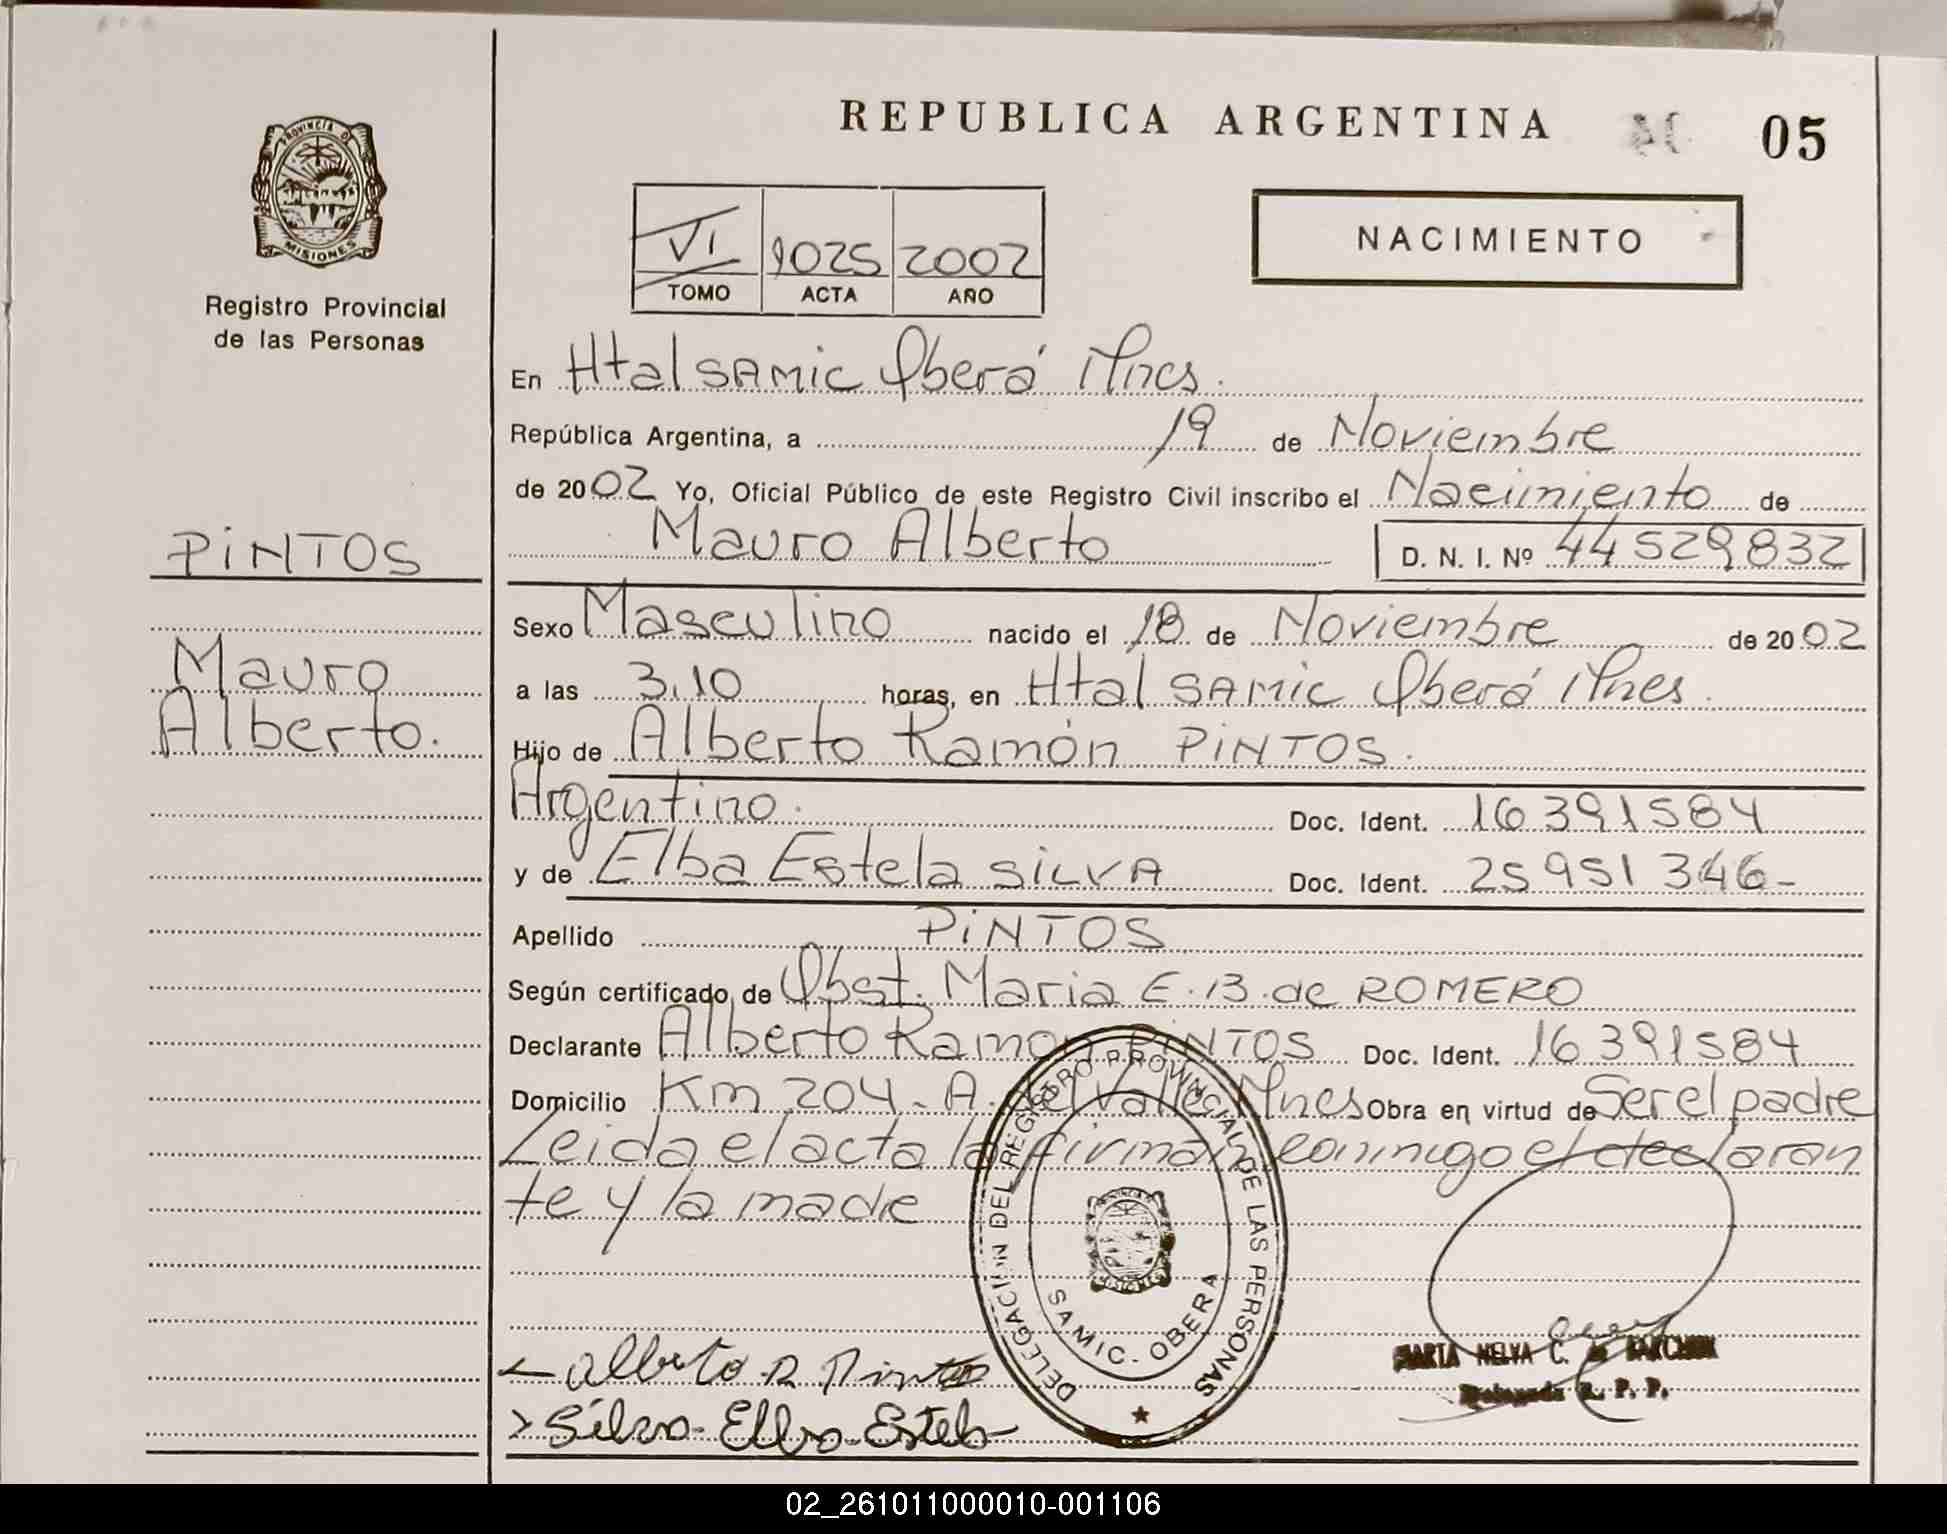 REPUBLICA ARGENTINA
05
PROVINCIA DE
MISIONES
Registro Provincial
de las Personas
VI 1025 2002
TOMO ACTA AÑO
NACIMIENTO
En Htal SAMIC Oberá Mnes.
República Argentina, a 19 de Noviembre
de 2002 Yo, Oficial Público de este Registro Civil inscribo el Nacimiento de
Mauro Alberto D. N. I. Nº 44 529,832
PiNTOS
Mauro
Alberto.
Sexo Masculino nacido el 18 de Noviembre de 2002
a las 3.10 horas, en Htal SAMIC Oberá Mnes.
Hijo de Alberto Ramón PiNTOS.
Argentino. Doc. Ident. 16 391584
y de Elba Estela SiLVA Doc. Ident. 25 951 346-
Apellido PiNTOS
Según certificado de Obst. Maria E. B. de ROMERO
Declarante Alberto Ramon PiNTOS Doc. Ident. 16 391584
Domicilio Km 204. A. del Valle Mnes Obra en virtud de Ser el padre
Leida el acta la firman conmigo el declaran
te y la madre
DELEGACION DEL REGISTRO PROVINCIAL DE LAS PERSONAS
SAMIC. OBERA
Alberto R Pintos
Silva Elba Estela
MARTA NELVA C. de
Delegada R. P. P.
02_261011000010-001106